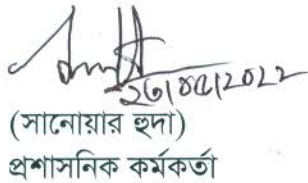 ২৬/০৫/২০২২
(সানোয়ার হুদা)
প্রশাসনিক কর্মকর্তা